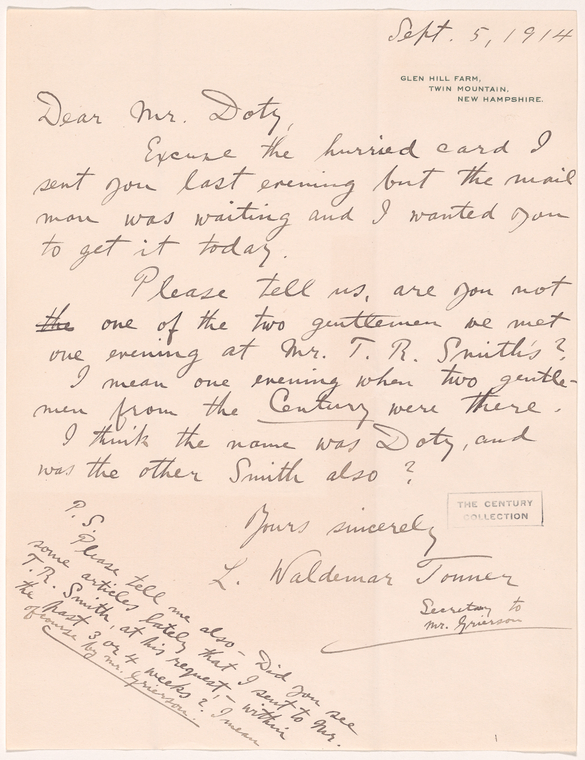 Sept. 5, 1914
GLEN HILL FARM,
TWIN MOUNTAIN,
NEW HAMPSHIRE.
Dear Mr. Doty,
Excuse the hurried card I
sent you last evening but the mail
man was waiting and I wanted you
to get it today.
Please tell us, are you not
the one of the two gentlemen we met
one evening at Mr. T. R. Smith's?
I mean one evening when two gentle-
men from the Century were there.
I think the name was Doty, and
was the other Smith also?
Yours sincerely
L. Waldemar Tonner
Secretary to
Mr. Grierson
THE CENTURY
COLLECTION
P.S.
Please tell me also – Did you see
some articles lately that I sent to Mr.
T. R. Smith, at his request, – within
the past 3 or 4 weeks? I mean
of course by Mr. Grierson.